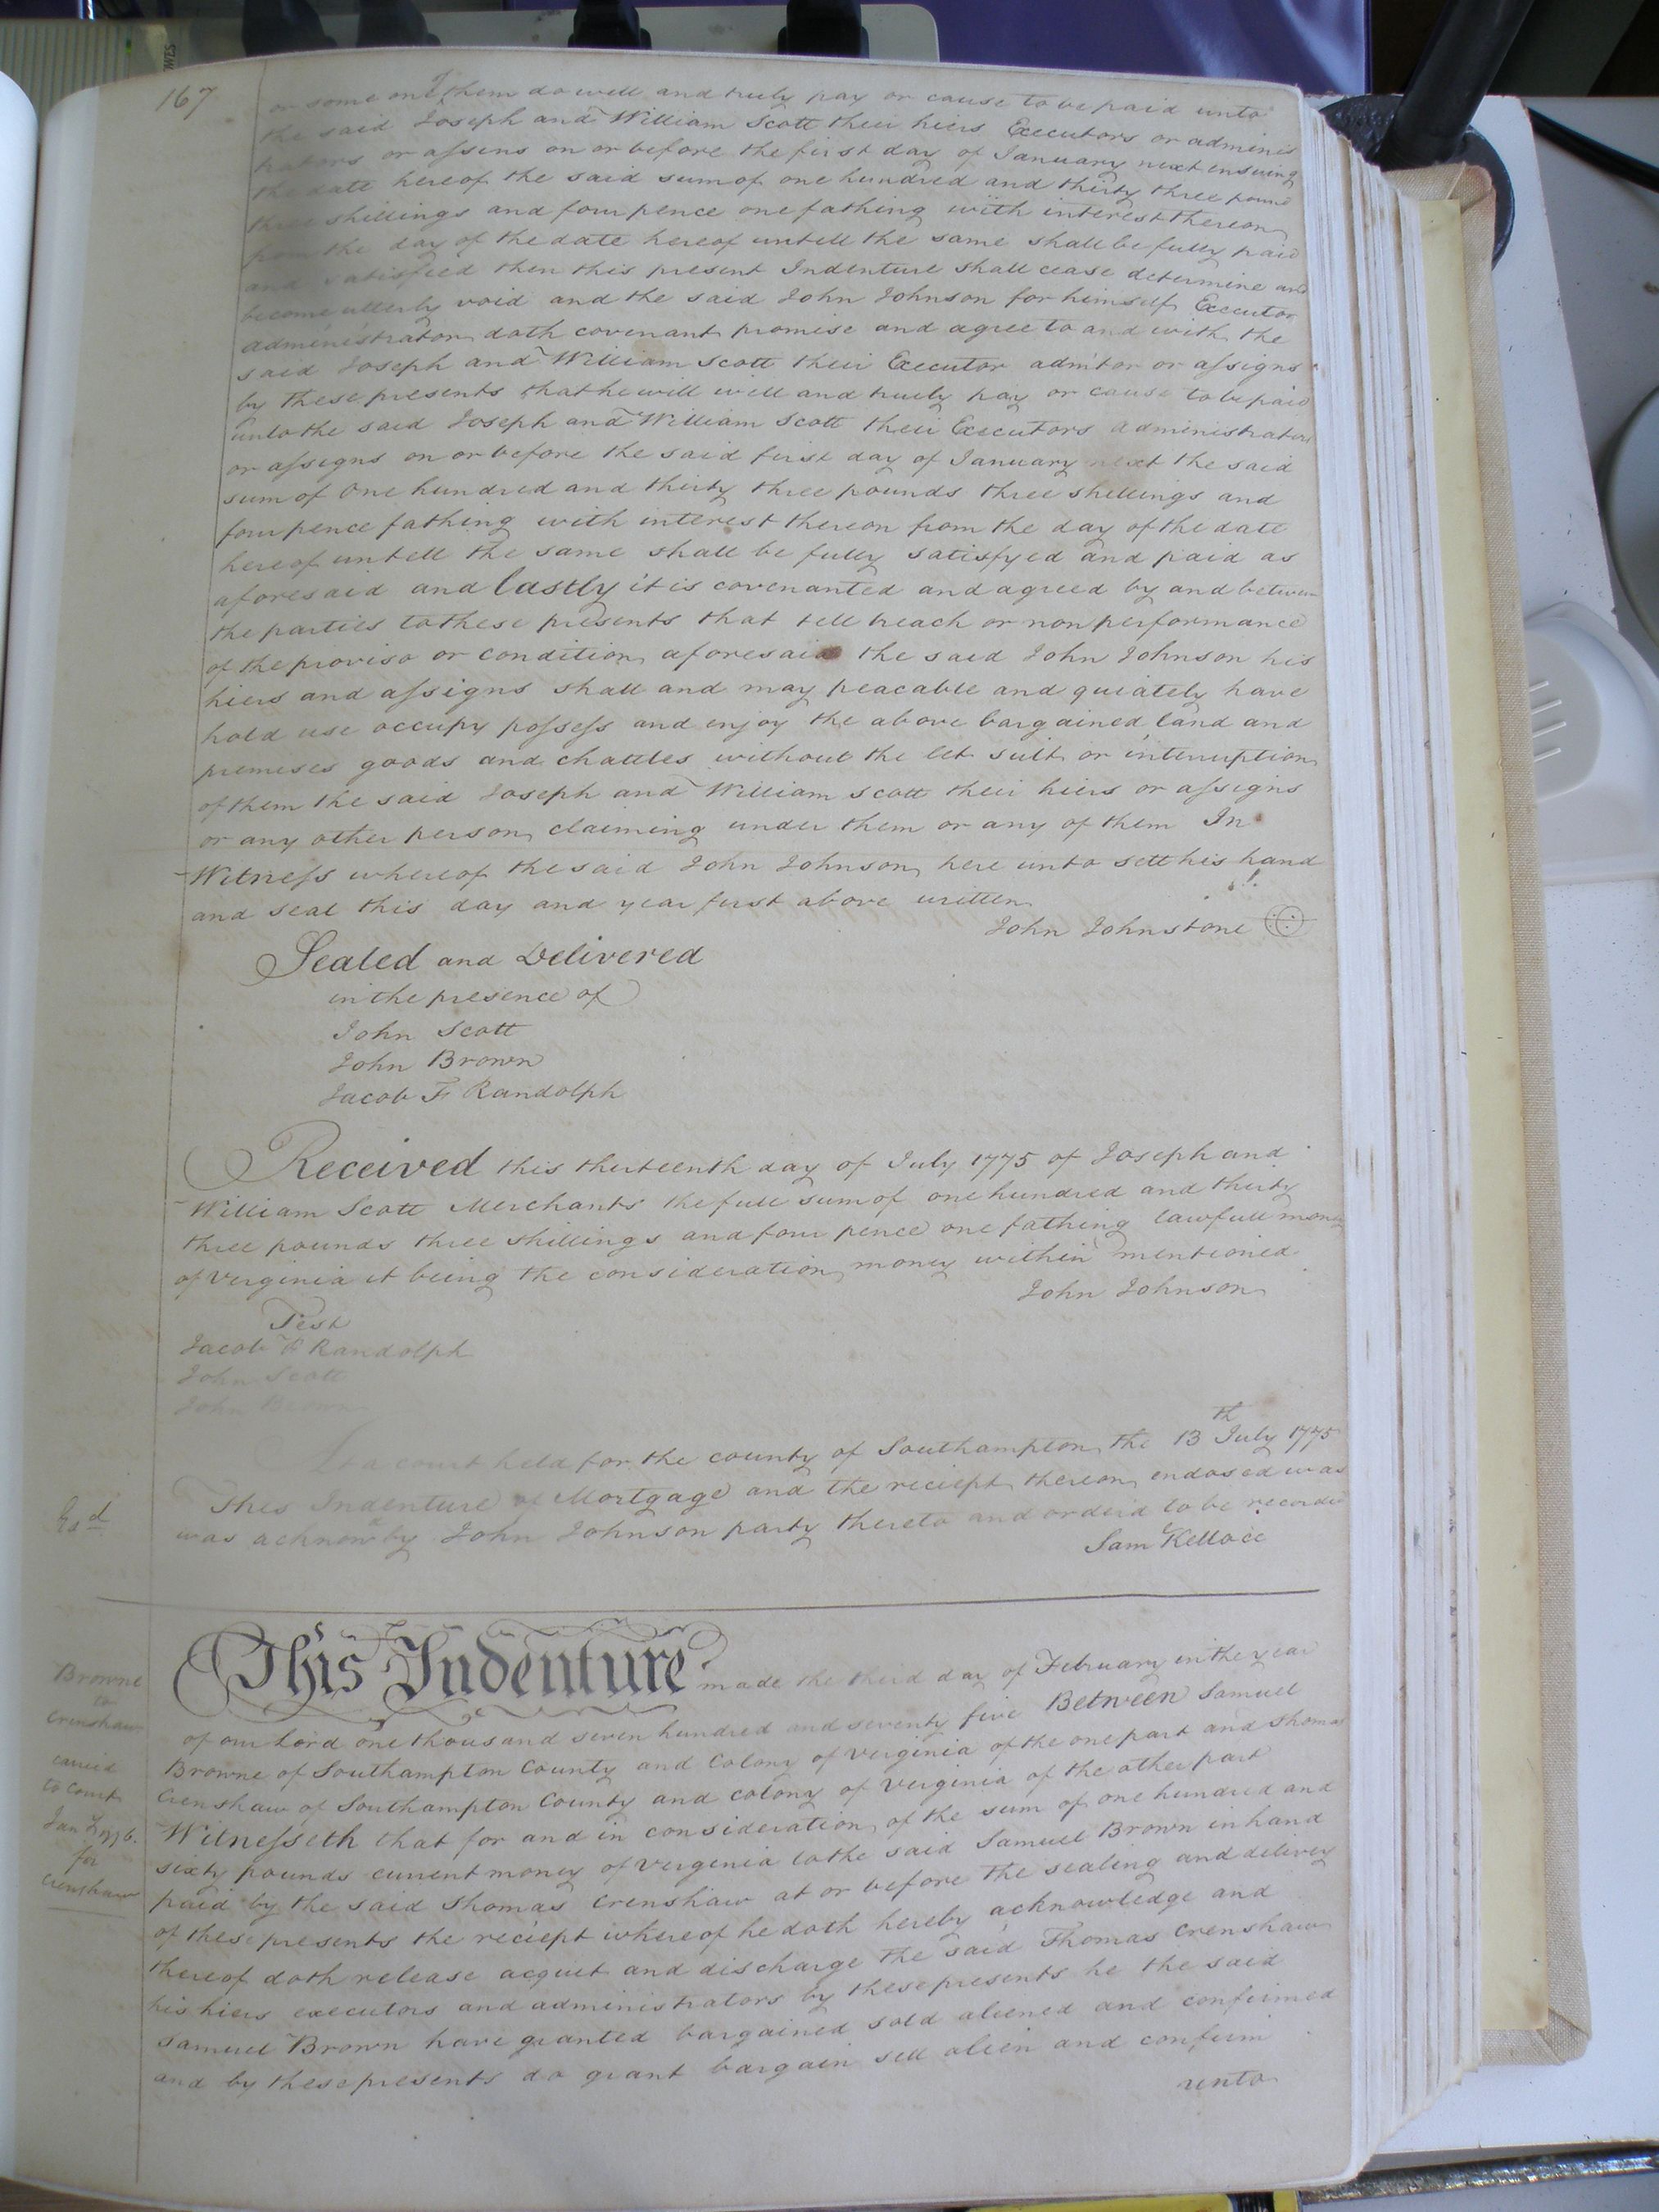 167
or some one of them do well and truly pay or cause to be paid unto
the said Joseph and William Scott their hiers Executors or adminis
trators or assins on or before the first day of January next ensuing
the date hereof the said sum of one hundred and thirty three pound
three shillings and four pence one fathing with interest thereon
from the day of the date hereof untill the same shall be fully paid
and satisfied then this present Indenture shall cease determine and
become utterly void and the said John Johnson for himself Executor
administrator doth covenant promise and agree to and with the
said Joseph and William Scott their Executor admtor or assigns
by these presents that he will will and truely pay or cause to be paid
unto the said Joseph and William Scott their Executors administrators
or assigns on or before the said first day of January next the said
sum of One hundred and thirty three pounds three shillings and
four pence fathing with interest thereon from the day of the date
hereof untell the same shall be fully satisfyed and paid as
aforesaid and lastly it is covenanted and agreed by and between
the parties to these presents that tell breach or non performance
of the proviso or condition aforesaid the said John Johnson his
hiers and assigns shall and may peacable and quiately have
hold use occupy possess and enjoy the above bargained land and
premises goods and chattles without the let suit or interruption
of them the said Joseph and William Scott their hiers or assigns
or any other person claiming under them or any of them In
Witness whereof the said John Johnson here unto sett his hand
and seal this day and year first above written
John Johnstone
Sealed and Delivered
in the presence of
John Scott
John Brown
Jacob F Randolph
Received this thirteenth day of July 1775 of Joseph and
William Scott Merchants the full sum of one hundred and thirty
three pounds three shillings and four pence one fathing lawfull money
of Verginia it being the consideration money within mentioned
John Johnson
Test
Jacob F Randolph
John Scott
John Brown
At a court held for the county of Southampton the 13th July 1775
This Indenture of Mortgage and the reciept thereon endosed was
was acknowd by John Johnson party thereto and orderd to be recorded
Sam Kelloce
Exd
Browne
to
Crenshaw
carried
to Court
Jan 1776.
for
Crenshaw
This Indenture made the third day of February in the year
of our Lord one thousand seven hundred and seventy five Between Samuel
Browne of Southampton County and Colony of Verginia of the one part and Thomas
Crenshaw of Southampton County and colony of Verginia of the other part
Witnesseth that for and in consideration of the sum of one hundred and
sixty pounds current money of Verginia to the said Samuel Brown in hand
paid by the said Thomas Crenshaw at or before the sealing and delivery
of these presents the reciept whereof he doth hereby acknowledge and
thereof doth release acquit and discharge the said Thomas Crenshaw
his hiers executors and administrators by these presents he the said
Samuel Brown have granted bargained sold aliened and confirmed
and by these presents do grant bargain sell alien and confirm
unto